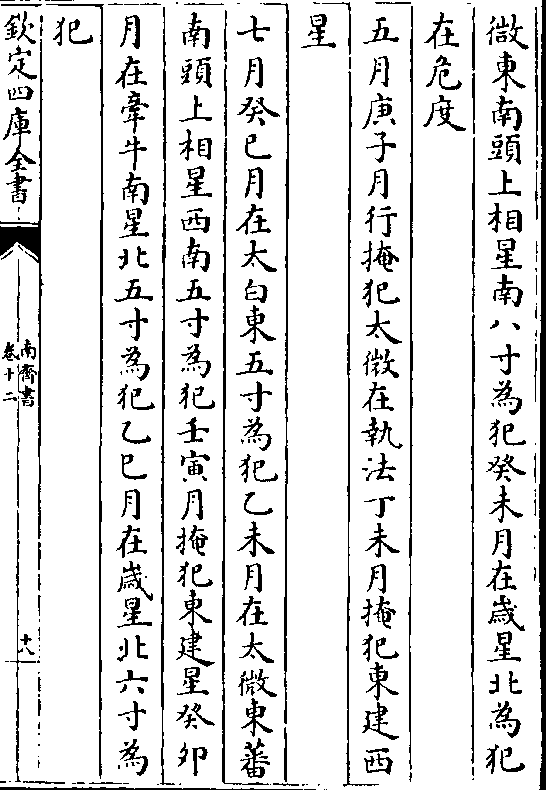 微東南頭上相星南八寸為犯癸未月在歲星北為犯
在危度
五月庚子月行掩犯太微在執法丁未月掩犯東建西
星
七月癸巳月在太白東五寸為犯乙未月在太微東蕃
南頭上相星西南五寸為犯壬寅月掩犯東建星癸卯
月在牽牛南星北五寸為犯乙巳月在歲星北六寸為
犯
欽定四庫全書
南齊書
卷十二
十八